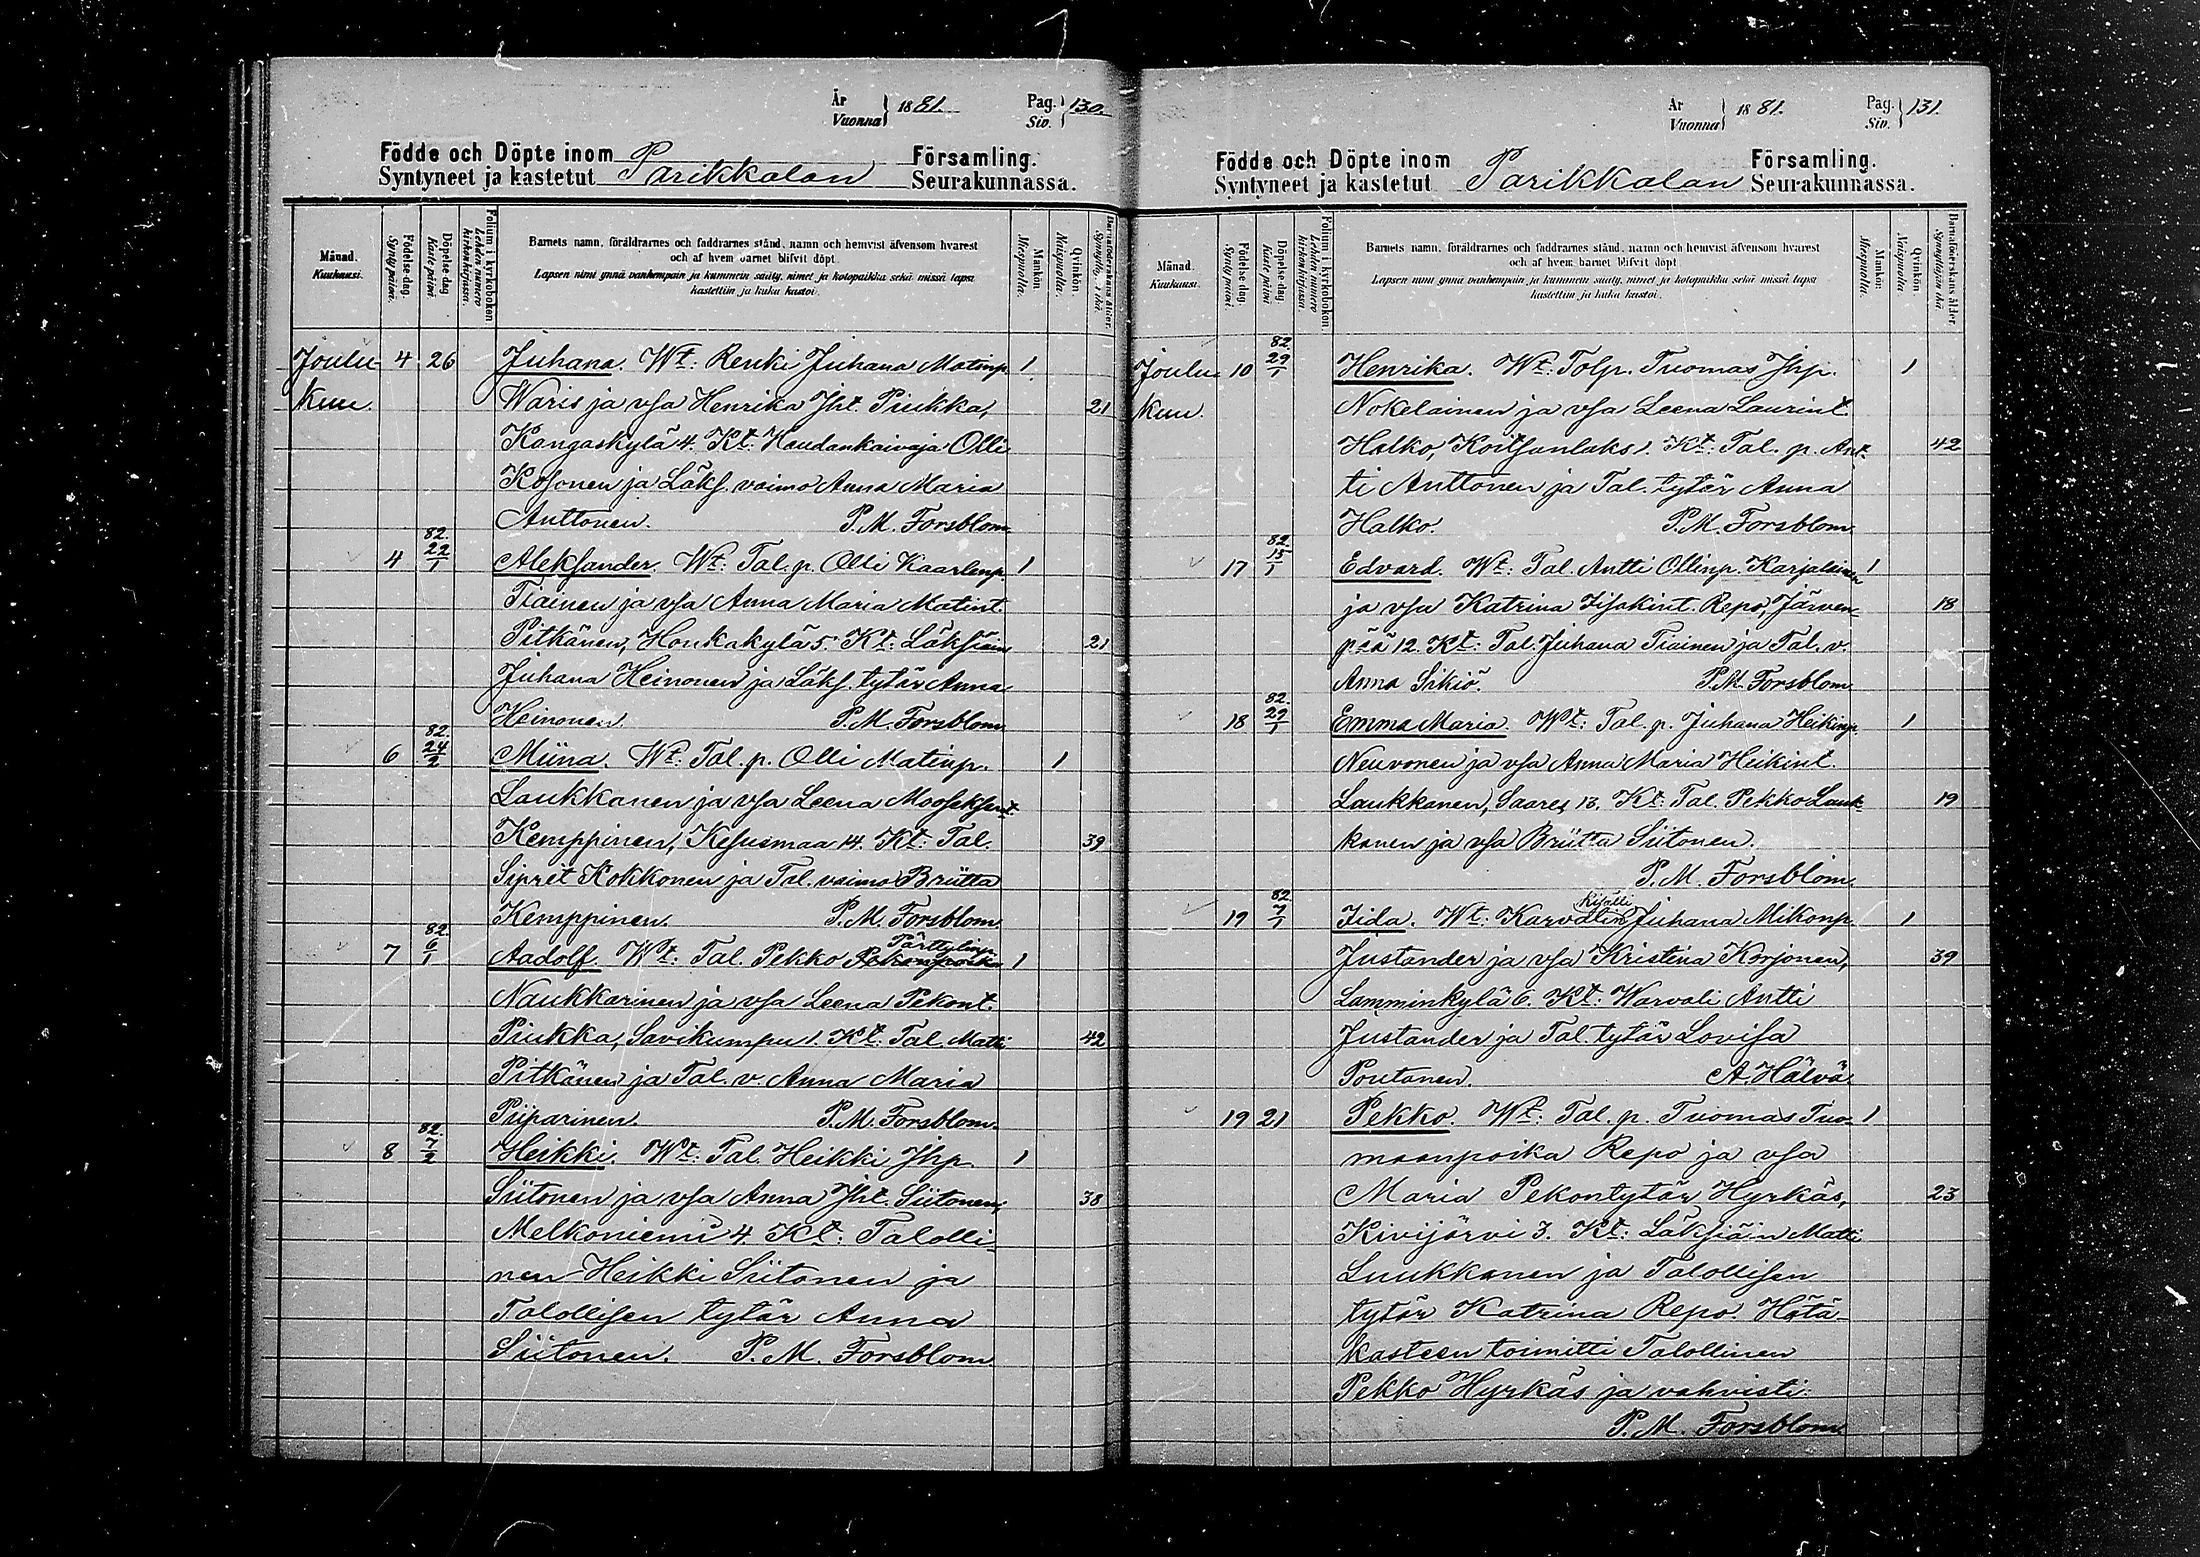 År Vuonna 1881. Pag. Siv. 130.
Födde och Döpte inom Parikkalan Församling.
Syntyneet ja kastetut Seurakunnassa.
Månad. Kuukausi.
Födelse-dag. Syntypäivä.
Döpelse-dag Kastepäivä.
Folium i kyrkoboken. Lehden numero kirkonkirjassa.
Barnets namn, föräldrarnes och faddrarnes stånd, namn och hemvist äfvensom hvarest
och af hvem barnet blifvit döpt.
Lapsen nimi ynnä vanhempain ja kummein sääty, nimet ja kotopaikka sekä missä lapsi
kastettiin ja kuka kastoi.
Mankön. Miespuolia.
Qvinkön. Naispuolia.
Barnaföderskans ålder. Synnyttäjän ikä.
Joulu- 4 26 Juhana. Wt: Renki Juhana Matinp. 1
kuu. Waris ja vsa Henrika Jht. Piukka, 21
Kangaskylä 4. Kt: Haudankaivaja Olli
Kosonen ja Läks. vaimo Anna Maria
Anttonen. P. M. Forsblom.
4 82. 22/1 Aleksander. Wt: Tal. p. Olli Kaarlenp. 1
Tiainen ja vsa Anna Maria Matint.
Pitkänen, Honkakylä 5. Kt: Läksiäin 21
Juhana Heinonen ja Läks. tytär Anna
Heinonen. P. M. Forsblom.
6 82. 24/2 Miina. Wt: Tal. p. Olli Matinp. 1
Laukkanen ja vsa Leena Mooseksent.
Kemppinen, Kesusmaa 14. Kt: Tal. 39
Siprét Kokkonen ja Tal. vaimo Briitta
Kemppinen. P. M. Forsblom.
7 82. 6/1 Aadolf. Wt: Tal. Pekko Pärttylinp. 1
Naukkarinen ja vsa Leena Pekont.
Piukka, Savikumpu 1. Kt: Tal. Matti 42
Pitkänen ja Tal. v. Anna Maria
Piiparinen. P. M. Forsblom.
8 82. 7/2 Heikki. Wt: Tal. Heikki Jhp. 1
Siitonen ja vsa Anna Jht. Siitonen, 38
Melkoniemi 4. Kt: Talolli-
nen Heikki Siitonen ja
Talollisen tytär Anna
Siitonen. P. M. Forsblom.
År Vuonna 1881. Pag. Siv. 131.
Födde och Döpte inom Parikkalan Församling.
Syntyneet ja kastetut Seurakunnassa.
Månad. Kuukausi.
Födelse-dag. Syntypäivä.
Döpelse-dag Kastepäivä.
Folium i kyrkoboken. Lehden numero kirkonkirjassa.
Barnets namn, föräldrarnes och faddrarnes stånd, namn och hemvist äfvensom hvarest
och af hvem barnet blifvit döpt.
Lapsen nimi ynnä vanhempain ja kummein sääty, nimet ja kotopaikka sekä missä lapsi
kastettiin ja kuka kastoi.
Mankön. Miespuolia.
Qvinkön. Naispuolia.
Barnaföderskans ålder. Synnyttäjän ikä.
Joulu- 10 82. 29/1 Henrika. Wt: Tolp. Tuomas Jhp. 1
kuu. Nokelainen ja vsa Leena Laurint.
Halko, Koitsanlaks 1. Kt: Tal. p. Ant- 42
ti Anttonen ja Tal. tytär Anna
Halko. P. M. Forsblom.
17 82. 15/1 Edvard. Wt: Tal. Antti Ollinp. Karjalainen 1
ja vsa Katrina Iisakint. Repo, Järven- 18
pää 12. Kt: Tal. Juhana Tiainen ja Tal. v.
Anna Sikiö. P. M. Forsblom.
18 82. 29/1 Emma Maria. Wt: Tal. p. Juhana Heikinp. 1
Neuvonen ja vsa Anna Maria Heikint.
Laukkanen, Saares 13. Kt: Tal. Pekko Lauk- 19
kanen ja vsa Briitta Siitonen.
P. M. Forsblom.
19 82. 7/1 Iida. Wt: Juhana Mikonp. 1
Justander ja vsa Kristina Korjonen, 39
Lamminkylä 6. Kt: Warvali Antti
Justander ja Tal. tytär Lovisa
Poutanen. A. Hälvä.
19 21 Pekko. Wt: Tal. p. Tuomas Tuo- 1
maanpoika Repo ja vsa
Maria Pekontytär Hyrkäs, 23
Kivijärvi 3. Kt: Läksiäin Matti
Luukkanen ja Talollisen
tytär Katrina Repo. Hätä-
kasteen toimitti Talollinen
Pekko Hyrkäs ja vahvisti
P. M. Forsblom.